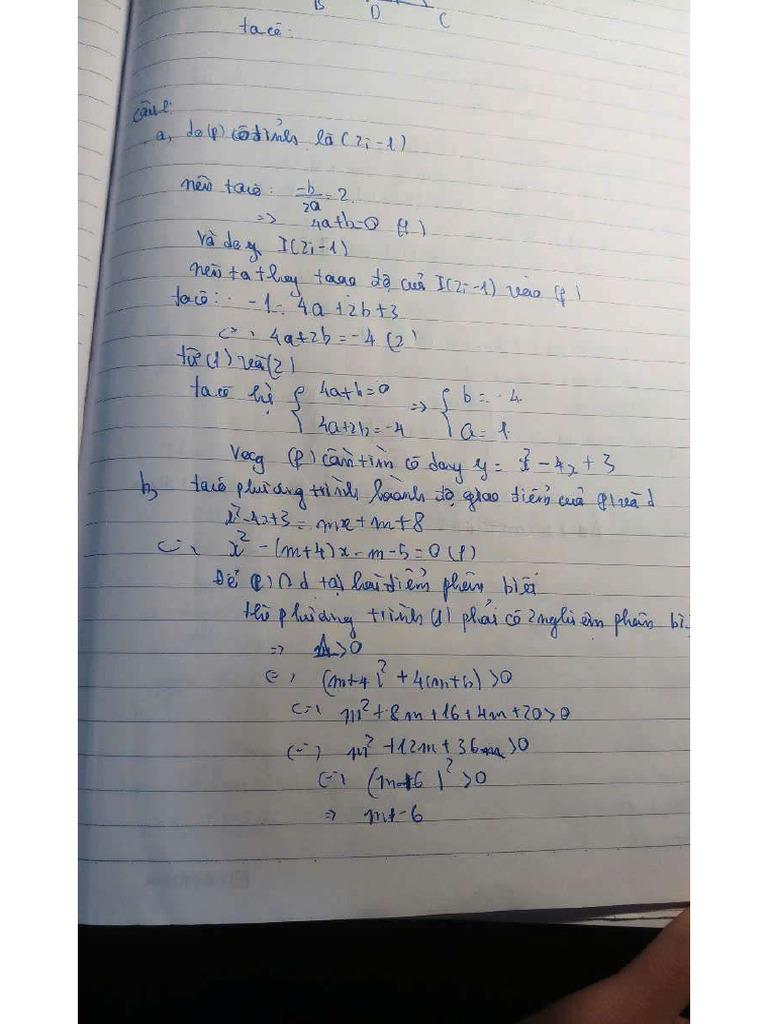 B D C
ta có:
câu 2:
a, do (P) có đỉnh là (2; -1)
nên ta có: -b/2a = 2
=> 4a+b=0 (1)
và do I(2; -1)
nên ta thay toạ độ của I(2; -1) vào (P)
ta có: -1 = 4a+2b+3
<=> 4a+2b = -4 (2)
từ (1) và (2)
ta có hệ { 4a+b=0 => { b = -4
4a+2b=-4 a=1
Vậy (P) cần tìm có dạng y = x² - 4x + 3
b, ta có phương trình hoành độ giao điểm của (P) và d
x²-4x+3 = mx+m+8
<=> x² - (m+4)x - m - 5 = 0 (1)
Để (P) ∩ d tại hai điểm phân biệt
thì phương trình (1) phải có 2 nghiệm phân bi
=> Δ>0
<=> (m+4)² + 4(m+5) >0
<=> m² + 8m + 16 + 4m + 20 > 0
<=> m² + 12m + 36 >0
<=> (m+6)² >0
=> m≠-6